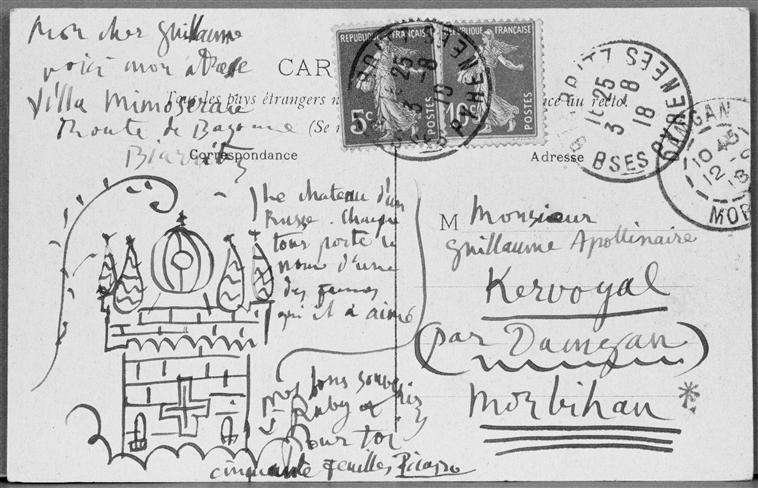 Mon cher Guillaume
voici mon adresse
Villa Mimoseraie
Route de Bayonne
Biarritz
CAR
Tous les pays étrangers n
ce au recto.
(Se r
Correspondance
Adresse
REPUBLIQUE FRANÇAISE
5c
POSTES
REPUBLIQUE FRANÇAISE
10c
POSTES
16 25
3 - 8
18
BSES PYRENEES
10 45
12 - 8
MOR
Le chateau d'un
Russe. Chaque
tour porte le
nom d'une
des femmes
qui il a aimé
M Monsieur
Guillaume Apollinaire
Kervoyal
(par Damgan)
Morbihan
mes bons souvenirs
à Ruby et
pour toi
cinquante feuilles Picasso